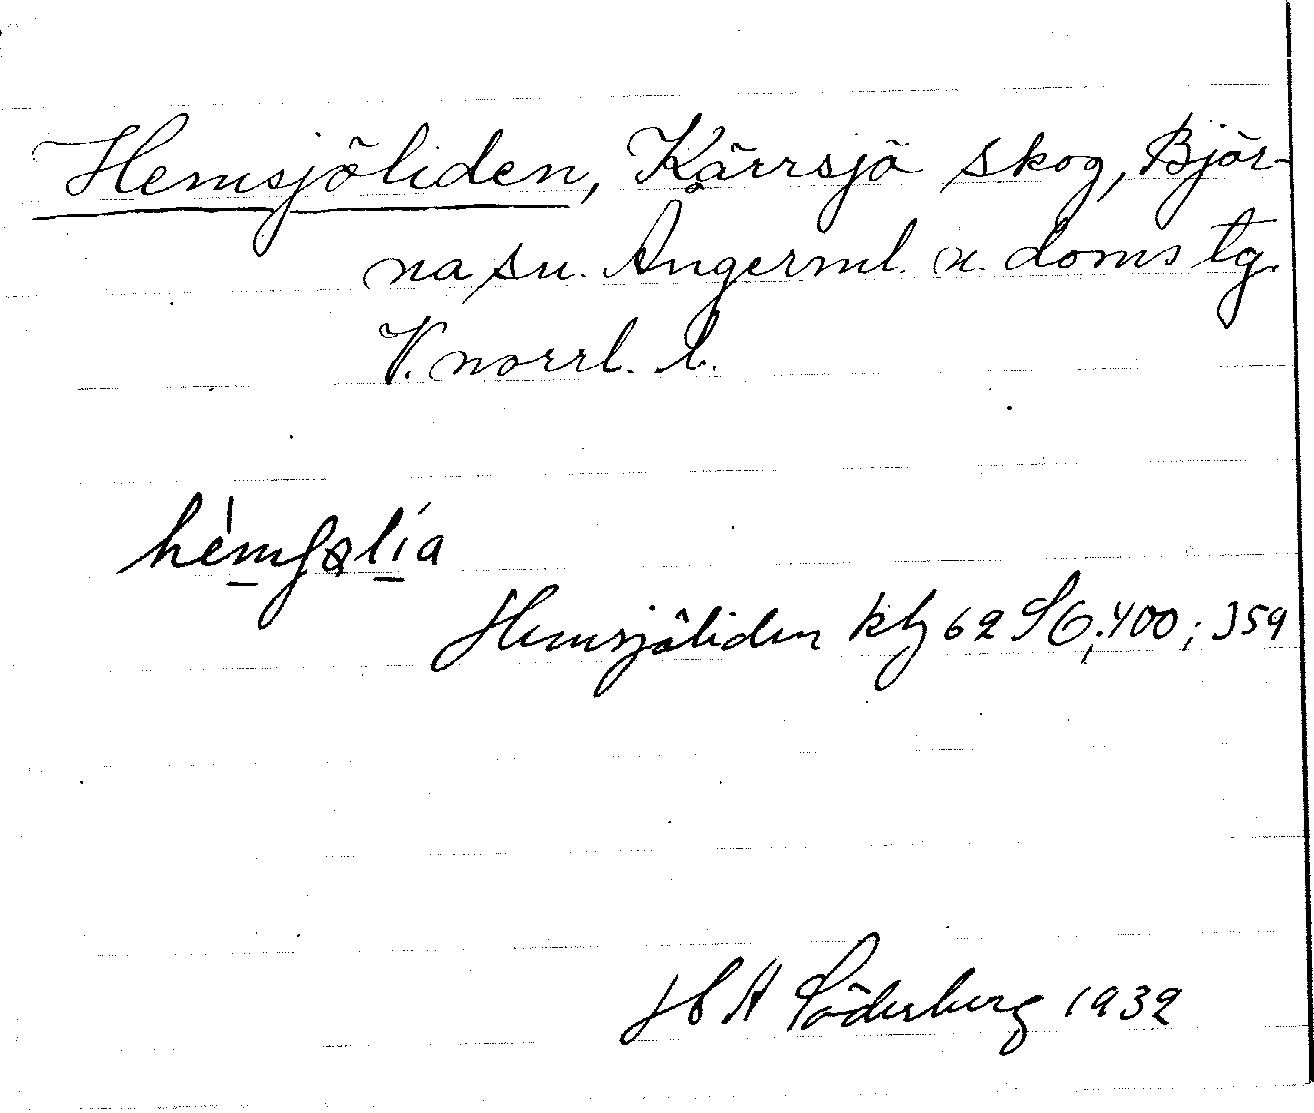 Hemsjöliden, Kärrsjö skog, Björ-
na sn. Ångerml. n. doms tg.
V. norrl. l.
Hemsjöliden kbl 62 SO; 400; 359
H A Söderberg 1932